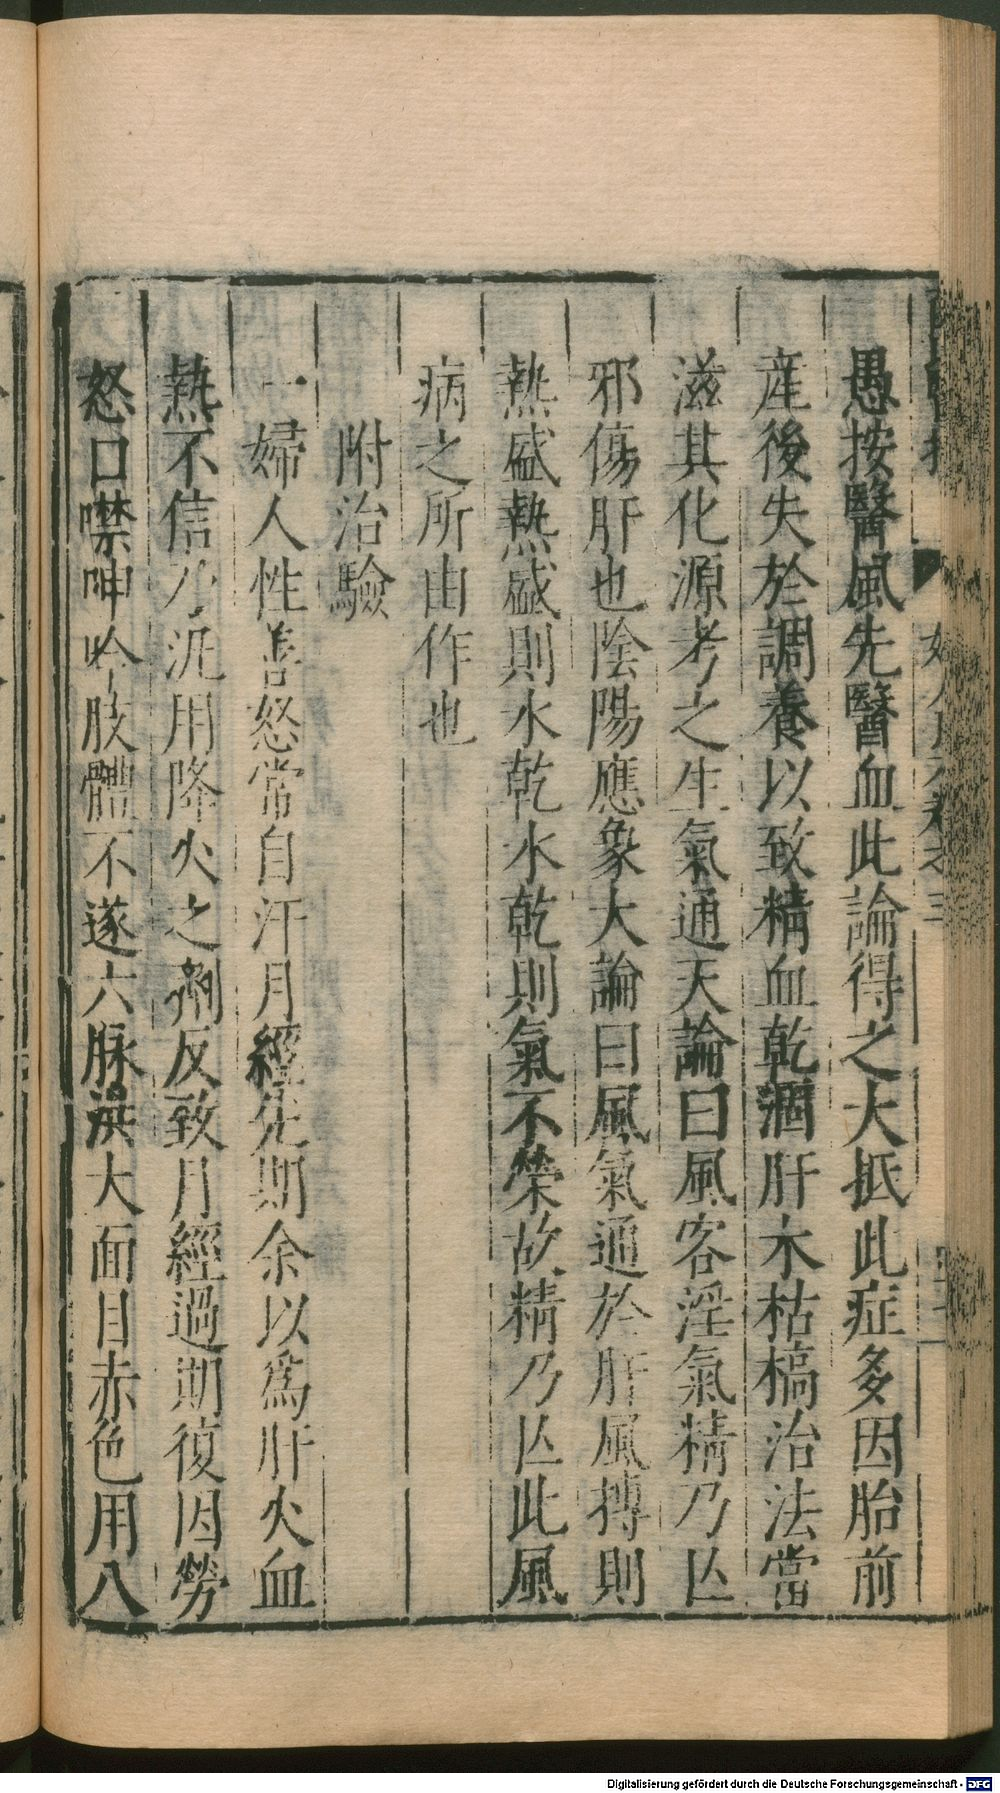 愚按醫風先醫血此論得之大抵此症多因胎前
産後失於調養以致精血乾涸肝木枯槁治法當
滋其化源考之生氣通天論曰風客淫氣精乃亾
邪傷肝也陰陽應象大論曰風氣通於肝風搏則
熱盛熱盛則水乾水乾則氣不榮故精乃亾此風
病之所由作也
附治驗
一婦人性善怒常自汗月經先期余以爲肝火血
熱不信乃泥用降火之劑反致月經過期復因勞
怒口噤呻吟肢體不遂六脉洪大面目赤色用八
Digitalisierung gefördert durch die Deutsche Forschungsgemeinschaft - DFG